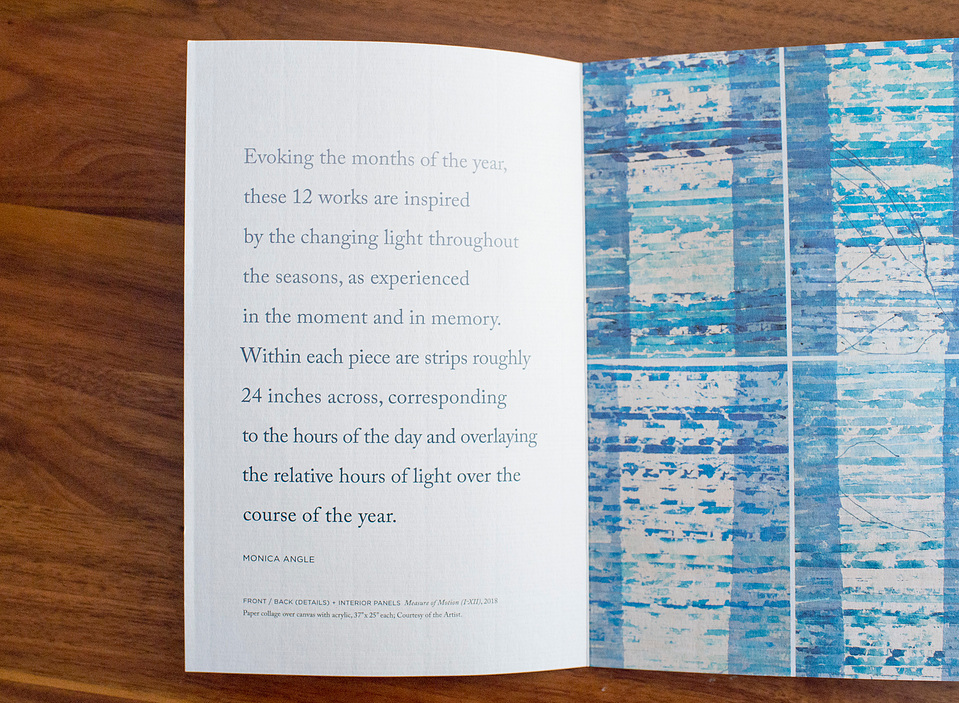 Evoking the months of the year,
these 12 works are inspired
by the changing light throughout
the seasons, as experienced
in the moment and in memory.
Within each piece are strips roughly
24 inches across, corresponding
to the hours of the day and overlaying
the relative hours of light over the
course of the year.
MONICA ANGLE
FRONT / BACK (DETAILS) + INTERIOR PANELS Measure of Motion (I-XII), 2018
Paper collage over canvas with acrylic, 37" x 25" each; Courtesy of the Artist.